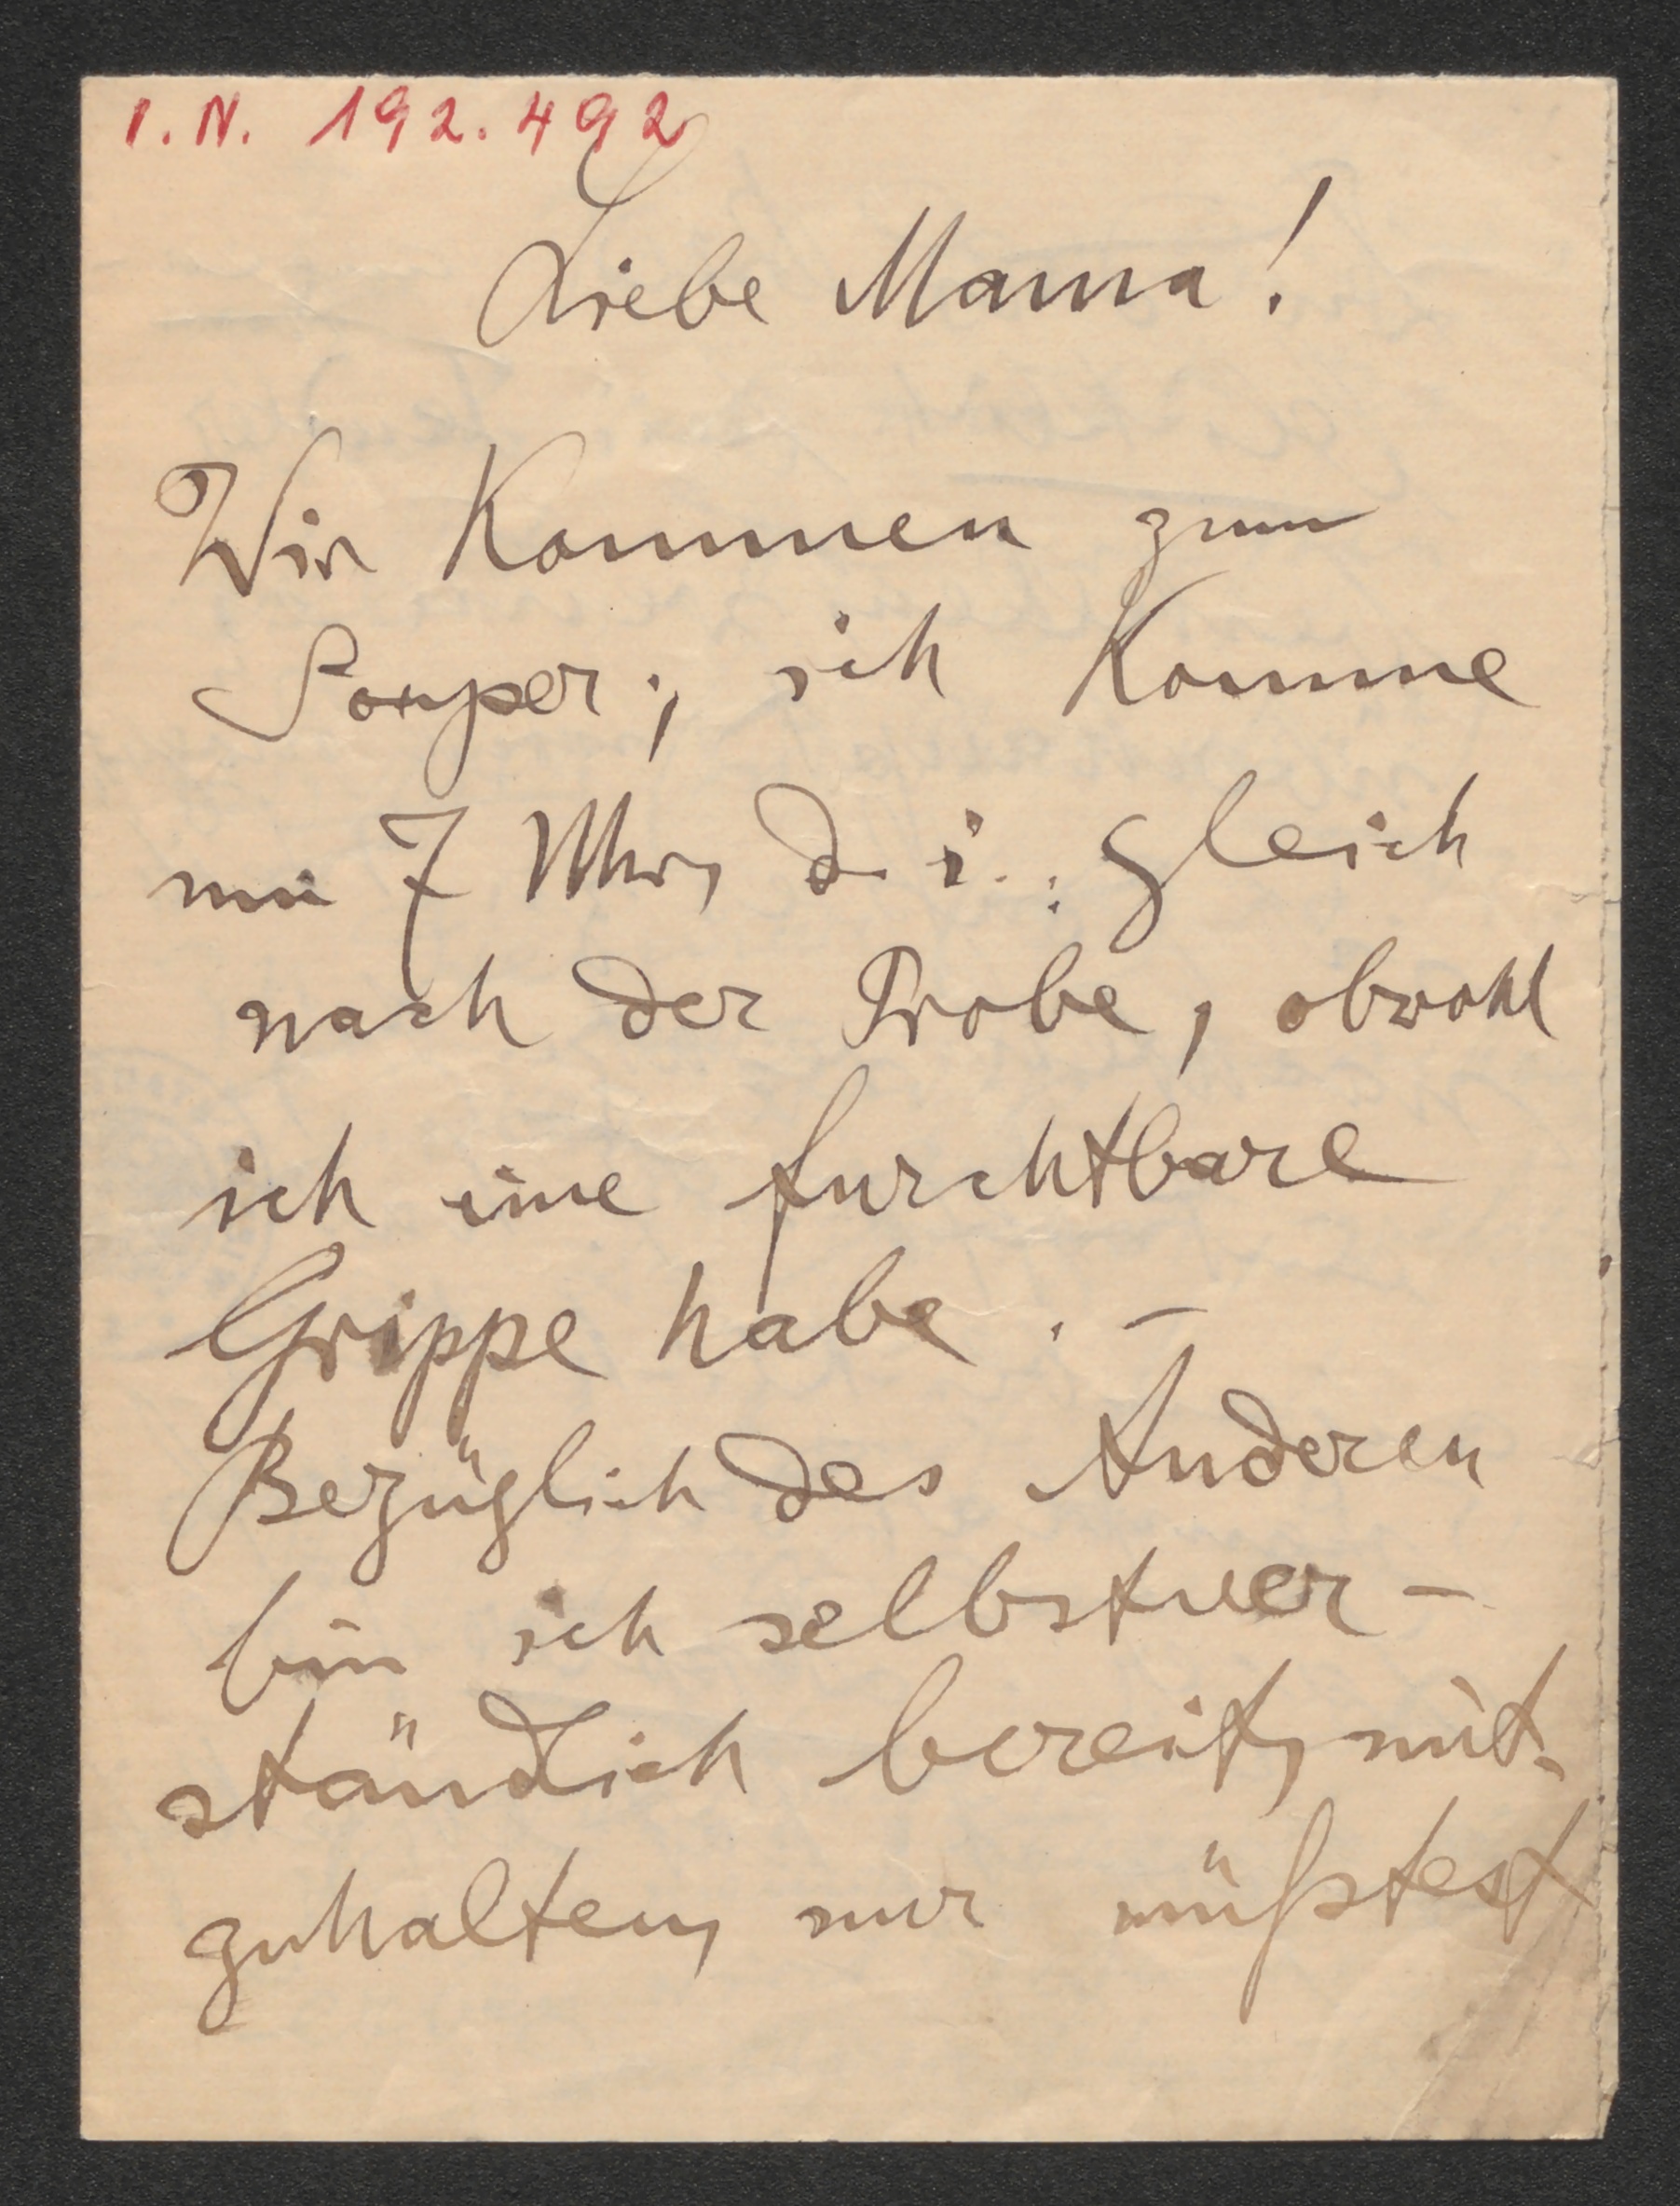 I.N. 192.492
Liebe Mama!
Wir kommen zum
Souper; ich komme
um 7 Uhr, d. i.: gleich
nach der Probe, obwohl
ich eine furchtbare
Grippe habe. –
Bezüglich des Anderen
bin ich selbstver-
ständlich bereit, mit-
zuhalten, nur müßtest